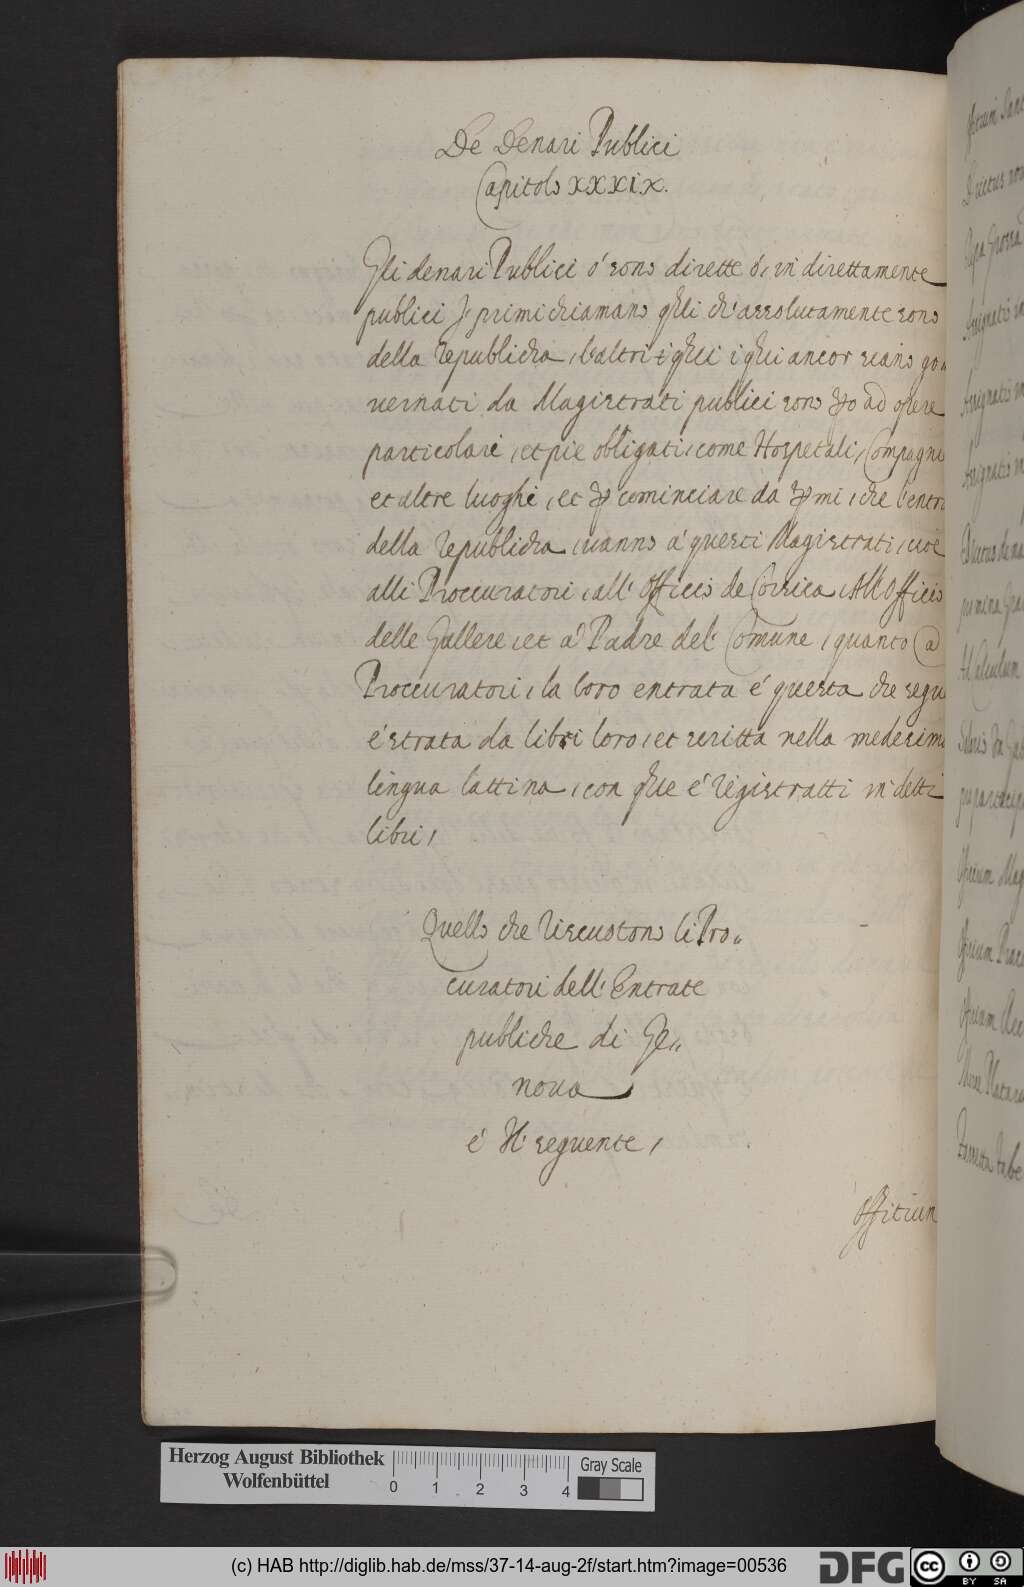 De Denari Publici
Capitolo XXXIX.
Gli denari Publici ó sono dirette ó, in direttamente
publici, primi chiamano qlli ch' assolutamente sono
della Republicha, l'altri qlli ancor siano go
vernati da Magistrati publici sono ad opere
particolari, et pie obligati, come Hospetali, Compagni
et altre luoghi, et cominciare da mi, che l'entr
della Republicha, vanno á questi Magistrati, cioé
alli Proccuratori, all' Officio de Corsica, All' Officio
delle Gallere, et á Padre del' Comune, quanto a
Proccuratori, la loro entrata é questa che segu
é strata da libri loro, et scritta nella medesim
lingua lattina, con que é Registratti in detti
libri,
Quello che Riscuotono li Pro„
curatori dell' Entrate
publiche di Ge„
noua
é Il' seguente,
Offitium
Herzog August Bibliothek
Wolfenbüttel
0 1 2 3 4
Gray Scale
(c) HAB http://diglib.hab.de/mss/37-14-aug-2f/start.htm?image=00536
DFG
cc BY SA